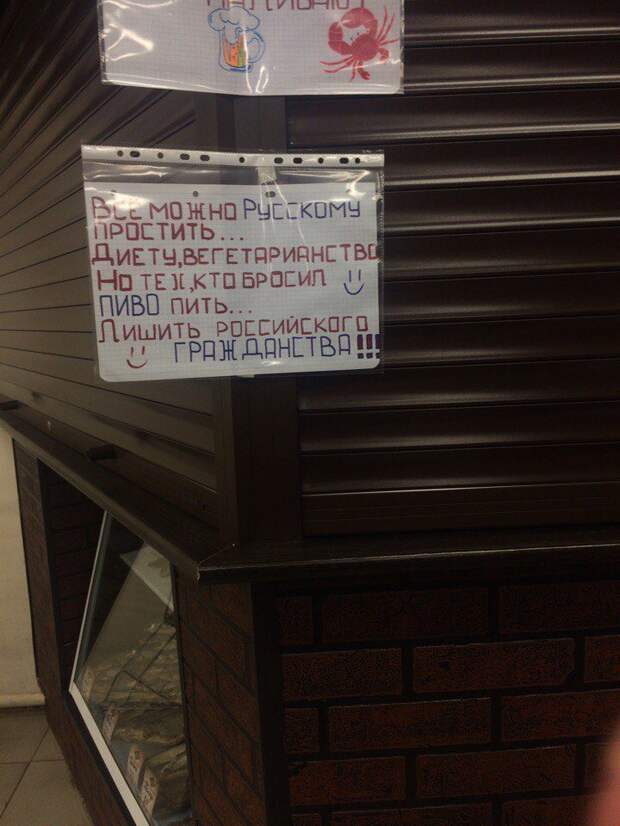 ВСЕ МОЖНО РУССКОМУ
ПРОСТИТЬ...
ДИЕТУ,ВЕГЕТАРИАНСТВО
НО ТЕХ,КТО БРОСИЛ
ПИВО ПИТЬ...
ЛИШИТЬ РОССИЙСКОГО
ГРАЖДАНСТВА!!!